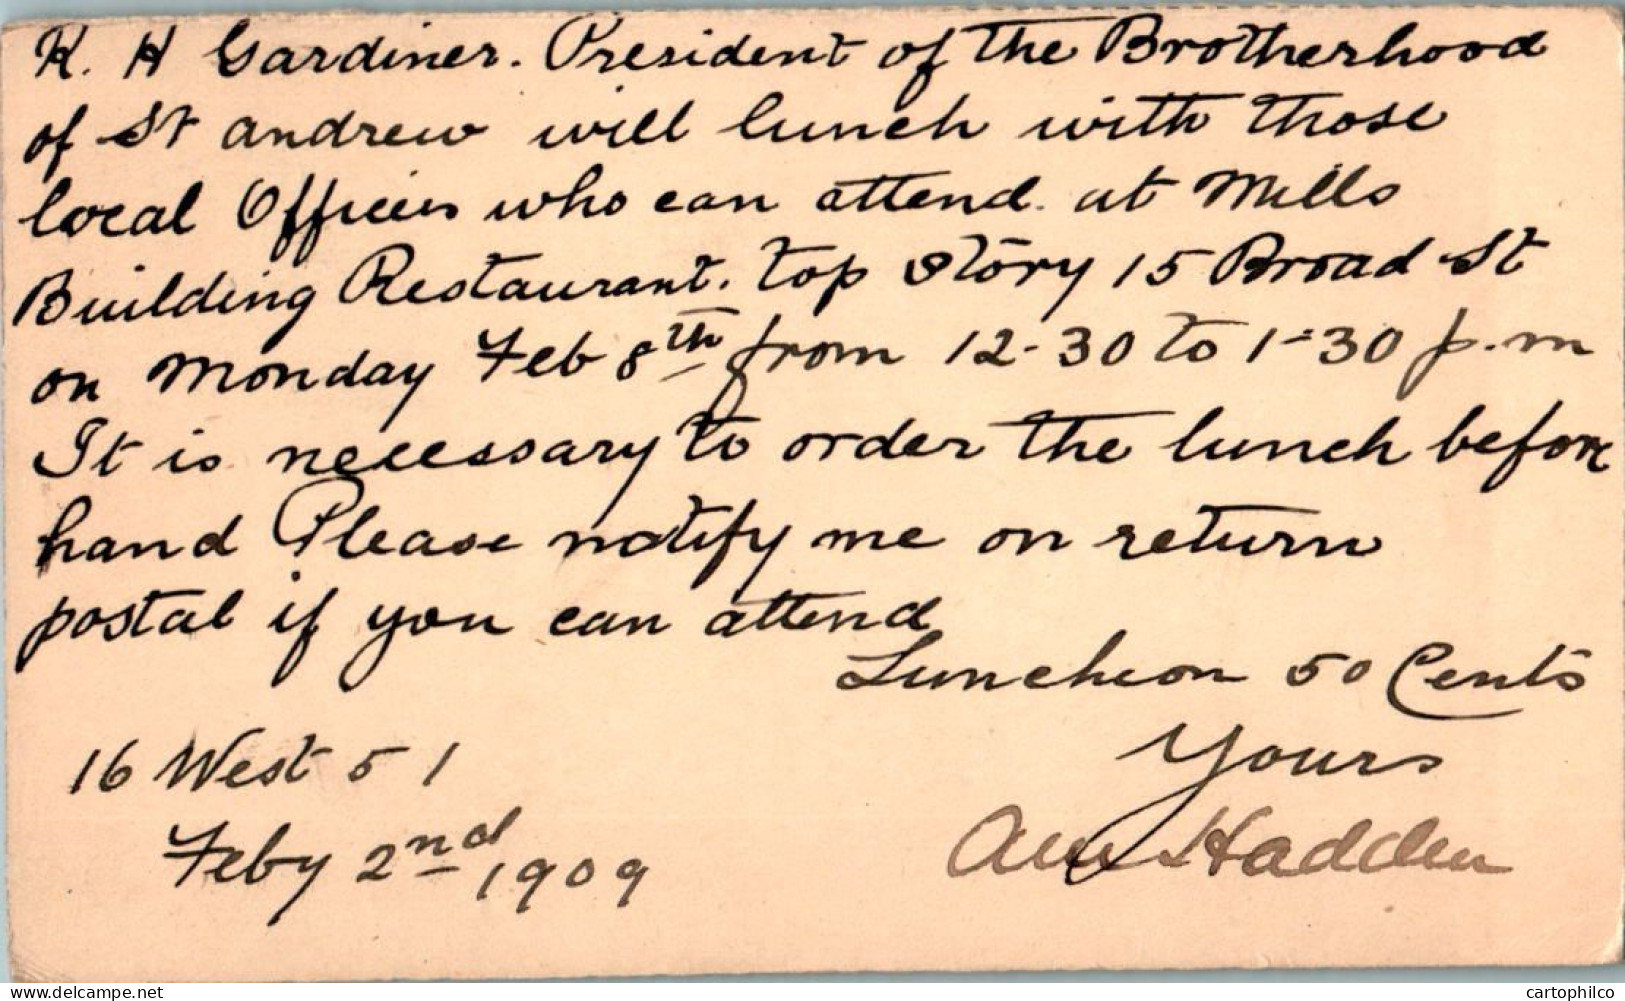 R. H Gardiner. President of the Brotherhood
of St andrew will lunch with those
local Officers who can attend. at Mills
Building Restaurant. top story 15 Broad St
on Monday Feb 8th from 12-30 to 1=30 p.m
It is necessary to order the lunch before
hand Please notify me on return
postal if you can attend
Luncheon 50 Cents
Yours
Hadden
16 West 51
Feby 2nd 1909
www.delcampe.net
cartophilco